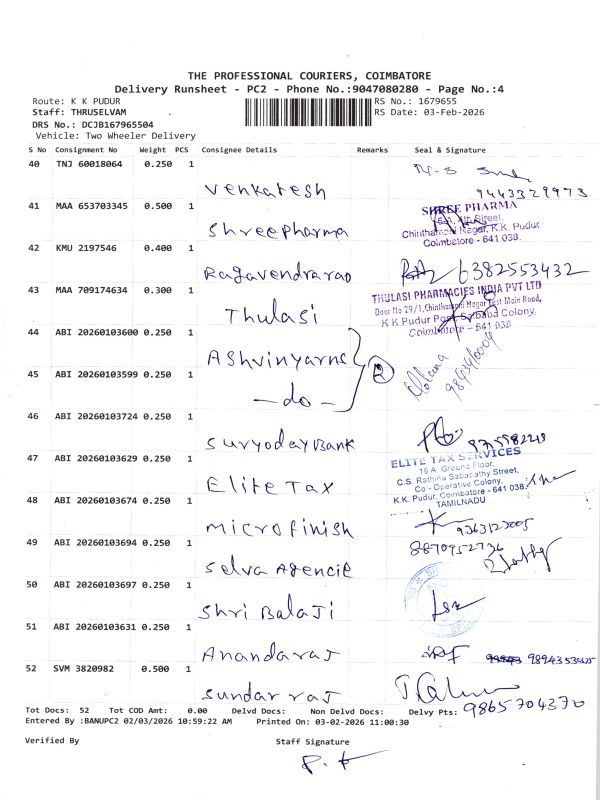 THE PROFESSIONAL COURIERS, COIMBATORE
Delivery Runsheet - PC2 - Phone No.:9047080280 - Page No.:4
Route: K K PUDUR RS No.: 1679655
Staff: THRUSELVAM RS Date: 03-Feb-2026
DRS No.: DCJB167965504
Vehicle: Two Wheeler Delivery
S No Consignment No Weight PCS Consignee Details Remarks Seal & Signature
40 TNJ 60018064 0.250 1
Venkatesh 9443329973
41 MAA 653703345 0.500 1 SHREE PHARMA
Shreepharma Chinthamoni Nagar, K.K. Pudur
Coimbatore - 641 038.
42 KMU 2197546 0.400 1
Ragavendrarao 6382553432
43 MAA 709174634 0.300 1 THULASI PHARMACIES INDIA PVT LTD
Door No 29/1, Chinthamani Nagar East Main Road,
Thulasi K K Pudur Post Saibaba Colony,
Coimbatore - 641 038
44 ABI 20260103600 0.250 1
Ashvinyarns 2
45 ABI 20260103599 0.250 1
-do-
46 ABI 20260103724 0.250 1
Suryoday Bank
47 ABI 20260103629 0.250 1 ELITE TAX SERVICES
19 A, Ground Floor,
C.S. Rathina Sabapathy Street,
Elite Tax Co - Operative Colony,
K.K. Pudur, Coimbatore - 641 038.
TAMILNADU
48 ABI 20260103674 0.250 1
Microfinish
49 ABI 20260103694 0.250 1 8870952736
Selva Agencie
50 ABI 20260103697 0.250 1
Shri Balaji
51 ABI 20260103631 0.250 1
Anandaraj
52 SVM 3820982 0.500 1
Sundar raj
Tot Docs: 52 Tot COD Amt: 0.00 Delvd Docs: Non Delvd Docs: Delvy Pts: 9865704370
Entered By :BANUPC2 02/03/2026 10:59:22 AM Printed On: 03-02-2026 11:00:30
Verified By Staff Signature